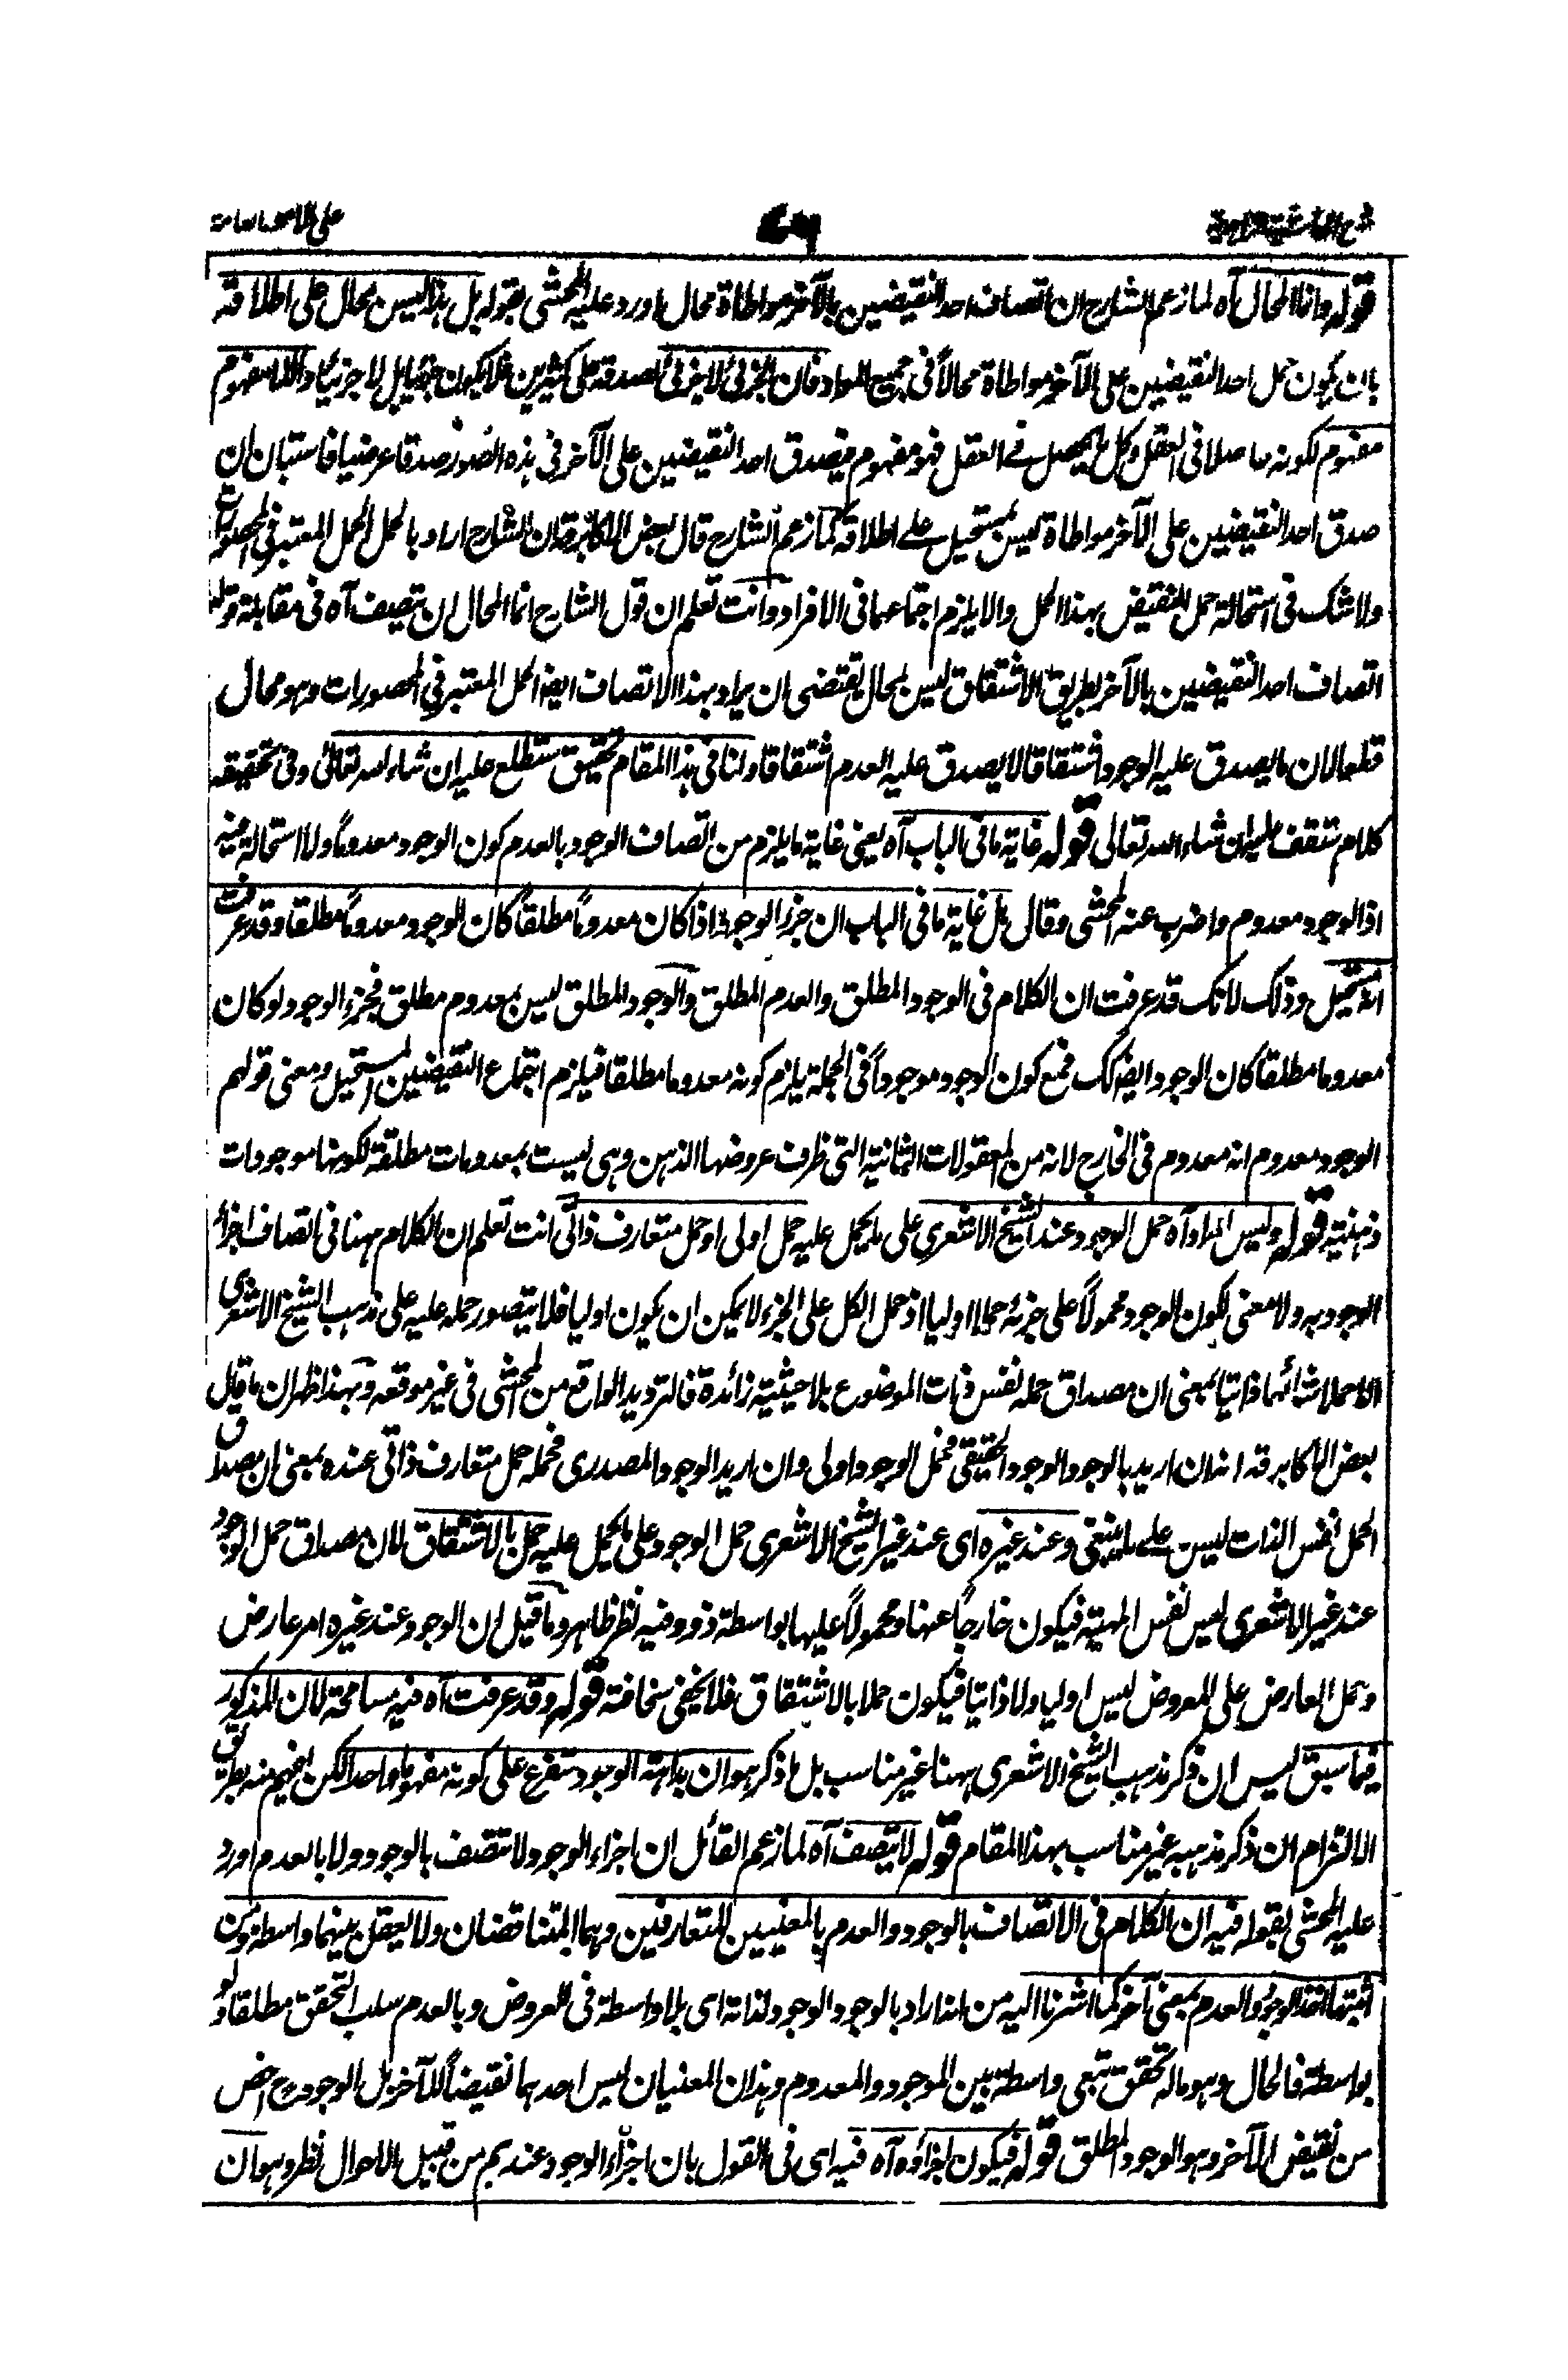 على الامور العامة
قوله وانما المحال آه لما زعم الشارح ان اتصاف احد النقيضين بالآخر مواطاة محال اورد عليه المحشى بقوله بل هذا ليس بمحال على اطلاقه
بان يكون حمل احد النقيضين على الآخر مواطاة محالاً فى جميع المواد فان الجزئى لاجزئى لصدقه على كثيرين فلا يكون جزئيا بل لا جزئيا واللامفهوم
مفهوم لكونه حاصلا فى العقل وكل ما يحصل فے العقل فهو مفهوم فيصدق احد النقيضين على الآخر فى هذه الصور صدقا عرضيا فاستبان ان
صدق احد النقيضين على الآخر مواطاة ليس بمستحيل علے اطلاقه كما زعم الشارح قال بعض الاكابر قد ان الشارح اراد بالحمل الحمل المعتبر فى المحصورات
ولا شك فى استحالة حمل النقيض بهذا الحمل والا يلزم اجتماعهما فى الافراد وانت تعلم ان قول الشارح انما المحال ان يتصف آه فى مقابلة قوله
اتصاف احد النقيضين بالآخر بطريق الاشتقاق ليس بمحال يقتضى ان يراد بهذا الاتصاف ايضا الحمل المعتبر فى المحصورات وهو محال
قطعا لان ما يصدق عليه الوجود اشتقاقا لا يصدق عليه العدم اشتقاقا ولنا فى هذا المقام تحقيق ستطلع عليه ان شاء الله تعالى وفى تحقيقه
كلام ستقف عليه ان شاء الله تعالى قوله غاية ما فى الباب آه يعنى غاية ما يلزم من اتصاف الوجود بالعدم كون الوجود معدوماً ولا استحالة فيه
اذ الوجود معدوم واضرب عنه المحشى وقال بل غاية ما فى الباب ان جزء الوجود اذا كان معدوماً مطلقاً كان الوجود معدوماً مطلقا وقد عرفت
انه مستحيل وذلك لانك قد عرفت ان الكلام فى الوجود المطلق والعدم المطلق والوجود المطلق ليس بمعدوم مطلق فجزء الوجود لو كان
معدوما مطلقا كان الوجود ايضا كك فمع كون الوجود موجوداً فى الجملة يلزم كونه معدوما مطلقا فيلزم اجتماع النقيضين المستحيل ومعنى قولهم
الوجود معدوم انه معدوم فى الخارج لانه من المعقولات الثانية التى ظرف عروضها الذهن وهى ليست بمعدومات مطلقة لكونها موجودات
ذهنية قوله وليس المراد آه حمل الوجود عند الشيخ الاشعرى على ما يحمل عليه حمل اولى او حمل متعارف ذاتى انت تعلم ان الكلام ههنا فى اتصاف اجزاء
الوجود به ولا معنى لكون الوجود محمولاً على جزئه حملا اوليا اذ حمل الكل على الجزء لا يمكن ان يكون اوليا فلا يتصور حمله عليه على مذهب الشيخ الاشعرى
الا حملا شائعا ذاتيا بمعنى ان مصداق حمله نفس ذات الموضوع بلا حيثية زائدة فالترديد الواقع من المحشى فى غير موقعه وبهذا ظهر ان ما قال
بعض الاكابر قد انه ان اريد بالوجود الوجود الحقيقى فحمل الوجود اولى وان اريد الوجود المصدرى فحمله حمل متعارف ذاتى عنده بمعنى ان مصداق
الحمل نفس الذات ليس علے ما ينبغى وعند غيره اى عند غير الشيخ الاشعرى حمل الوجود على ما يحمل عليه حمل بالاشتقاق لان مصداق حمل الوجود
عند غير الاشعرى ليس نفس المهية فيكون خارجاً عنها ومحمولاً عليها بواسطة ذو وفيه نظر ظاهر وما قيل ان الوجود عند غيره امر عارض
وحمل العارض على المعروض ليس اوليا ولا ذاتيا فيكون حملا بالاشتقاق فلا يخفى سخافته قوله وقد عرفت آه فيه مسامحة لان المذكور
فيما سبق ليس ان ذكر مذهب الشيخ الاشعرى ههنا غير مناسب بل ما ذكر هو ان بداهة الوجود متفرع على كونه مفهوما واحدا لكن يفهم منه بطريق
الالتزام ان ذكر مذهبه غير مناسب بهذا المقام قوله لا يتصف آه لما زعم القائل ان اجزاء الوجود لا تتصف بالوجود ولا بالعدم اورد
عليه المحشى بقوله فيه ان الكلام فى الاتصاف بالوجود والعدم بالمعنيين المتعارفين وهما المتناقضان ولا يعقل بينهما واسطة ومن
اثبتها اخذ الوجود والعدم بمعنى آخر كما اشرنا اليه من انه اراد بالوجود الوجود لذاته اى بلا واسطة فى العروض وبالعدم سلب التحقق مطلقا ولو
بواسطة فالحال وهو ماله تحقق تبعى واسطة بين الموجود والمعدوم وهذان المعنيان ليس احدهما نقيضاً للآخر بل الوجود ح اخص
من نقيض الآخر وهو الوجود المطلق قوله فيكون اجزاؤه آه فيه اى فى القول بان اجزاء الوجود عندهم من قبيل الاحوال نظر وهو ان